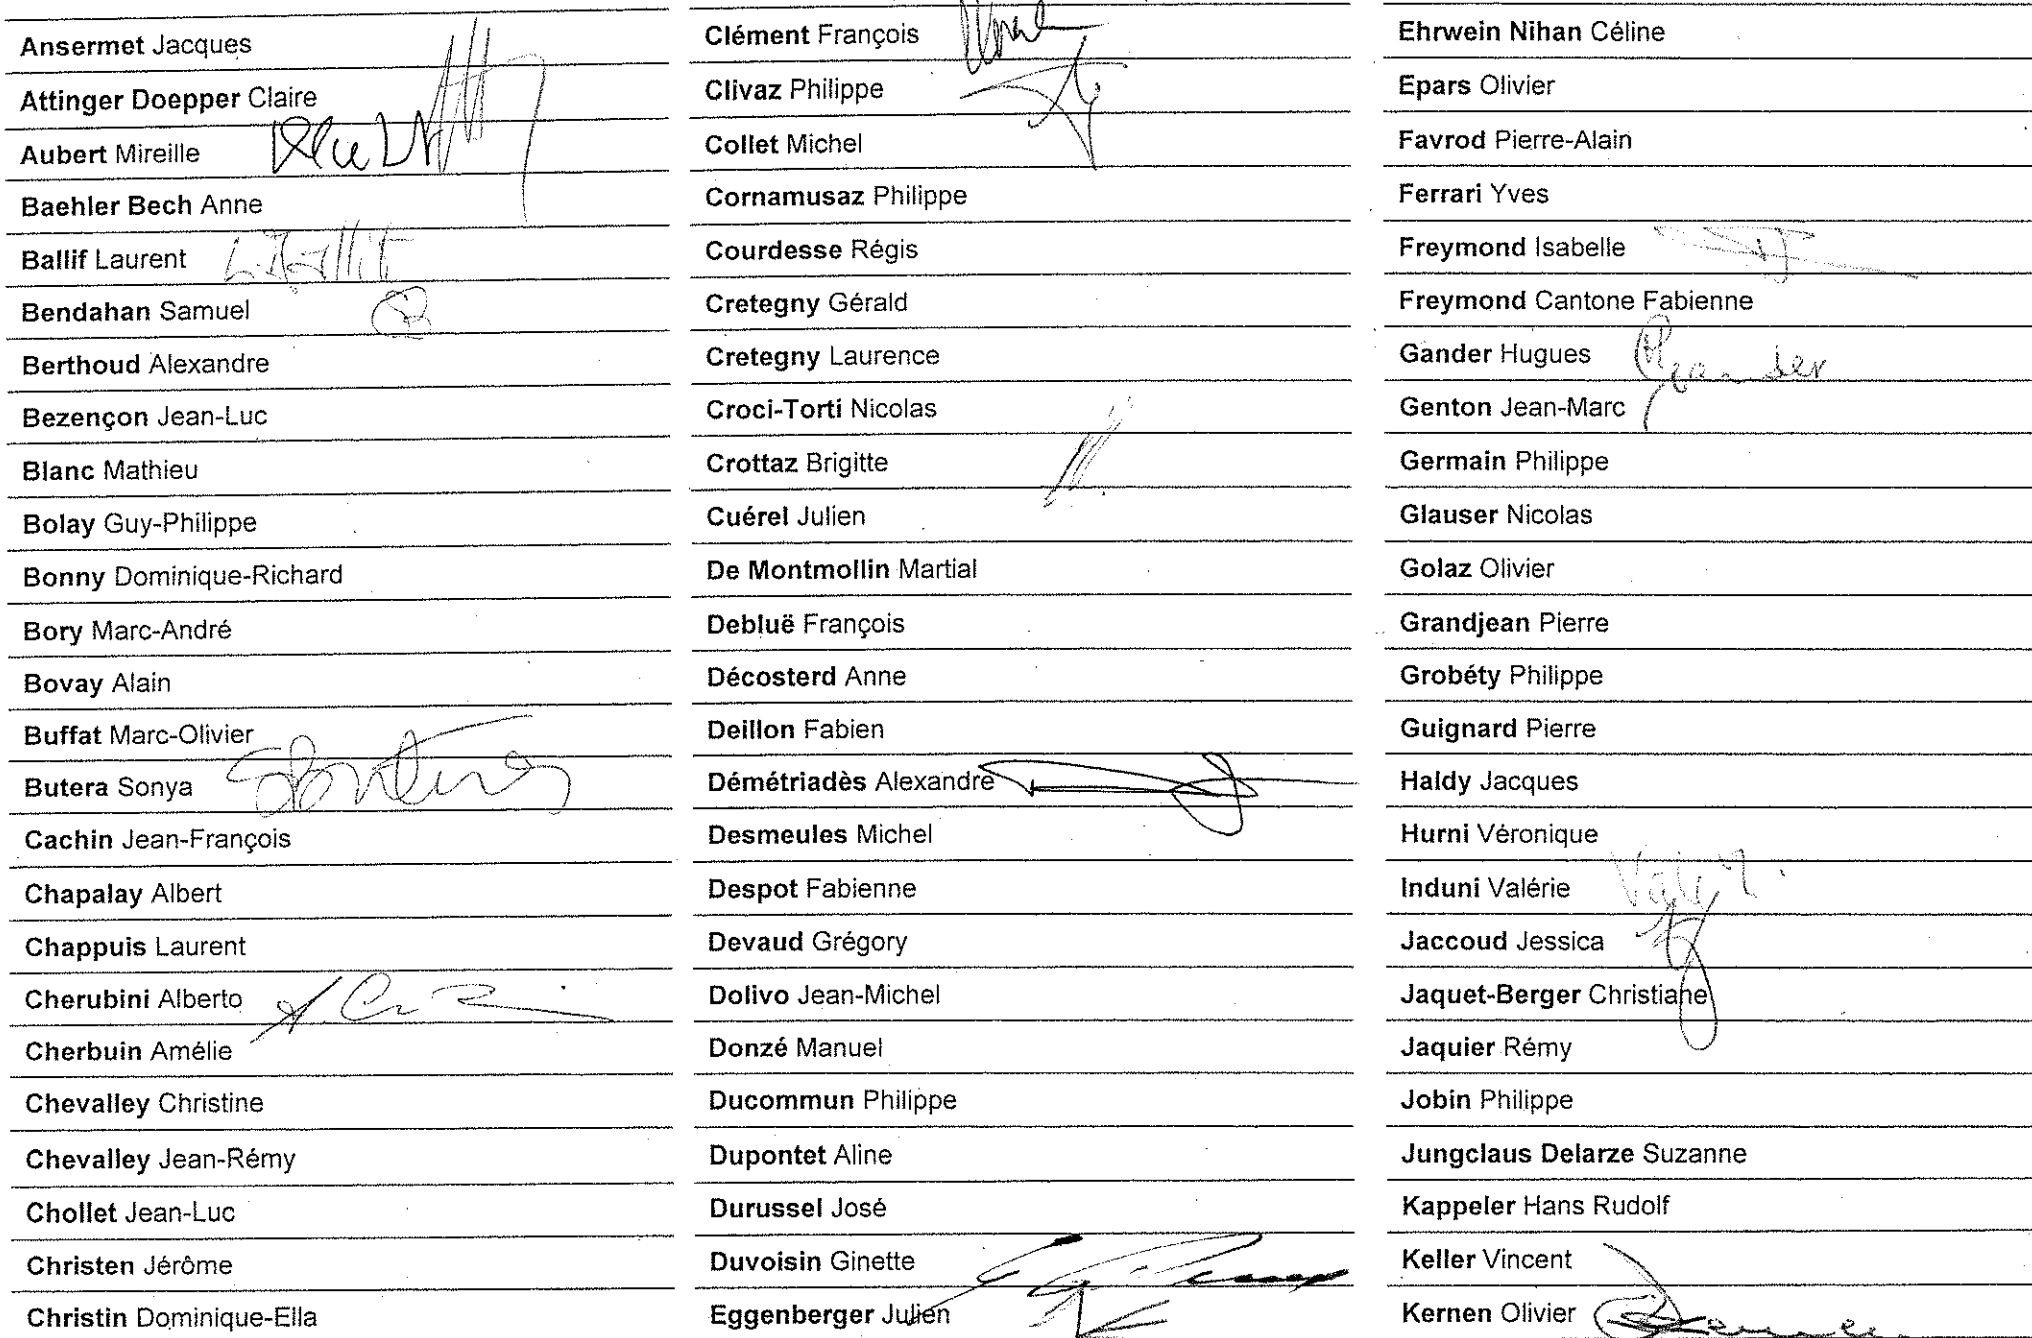 Ansermet Jacques
Attinger Doepper Claire
Aubert Mireille
Baehler Bech Anne
Ballif Laurent L. Ballif
Bendahan Samuel
Berthoud Alexandre
Bezençon Jean-Luc
Blanc Mathieu
Bolay Guy-Philippe
Bonny Dominique-Richard
Bory Marc-André
Bovay Alain
Buffat Marc-Olivier
Butera Sonya
Cachin Jean-François
Chapalay Albert
Chappuis Laurent
Cherubini Alberto
Cherbuin Amélie
Chevalley Christine
Chevalley Jean-Rémy
Chollet Jean-Luc
Christen Jérôme
Christin Dominique-Ella
Clément François
Clivaz Philippe
Collet Michel
Cornamusaz Philippe
Courdesse Régis
Cretegny Gérald
Cretegny Laurence
Croci-Torti Nicolas
Crottaz Brigitte
Cuérel Julien
De Montmollin Martial
Debluë François
Décosterd Anne
Deillon Fabien
Démétriadès Alexandre
Desmeules Michel
Despot Fabienne
Devaud Grégory
Dolivo Jean-Michel
Donzé Manuel
Ducommun Philippe
Dupontet Aline
Durussel José
Duvoisin Ginette
Eggenberger Julien
Ehrwein Nihan Céline
Epars Olivier
Favrod Pierre-Alain
Ferrari Yves
Freymond Isabelle
Freymond Cantone Fabienne
Gander Hugues Gander
Genton Jean-Marc
Germain Philippe
Glauser Nicolas
Golaz Olivier
Grandjean Pierre
Grobéty Philippe
Guignard Pierre
Haldy Jacques
Hurni Véronique
Induni Valérie
Jaccoud Jessica
Jaquet-Berger Christiane
Jaquier Rémy
Jobin Philippe
Jungclaus Delarze Suzanne
Kappeler Hans Rudolf
Keller Vincent
Kernen Olivier